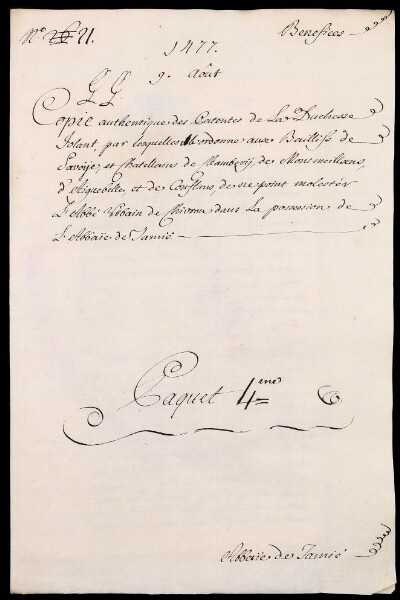 N.º 21. Benefices
1477.
9. Aout
G G
Copie authentique des Patentes de La Duchesse
Iolant, par lesquelles Elle ordonne aux Baillifs de
Savoije, et Chatellains de Chambery, de Montmeillans,
d'Aiguebelle, et de Conflens de ne point molester
L'Abbé Urbain de Chivron dans La possession de
L'Abbaïe de Tamié
Paquet 4.me
Abbaïe de Tamié